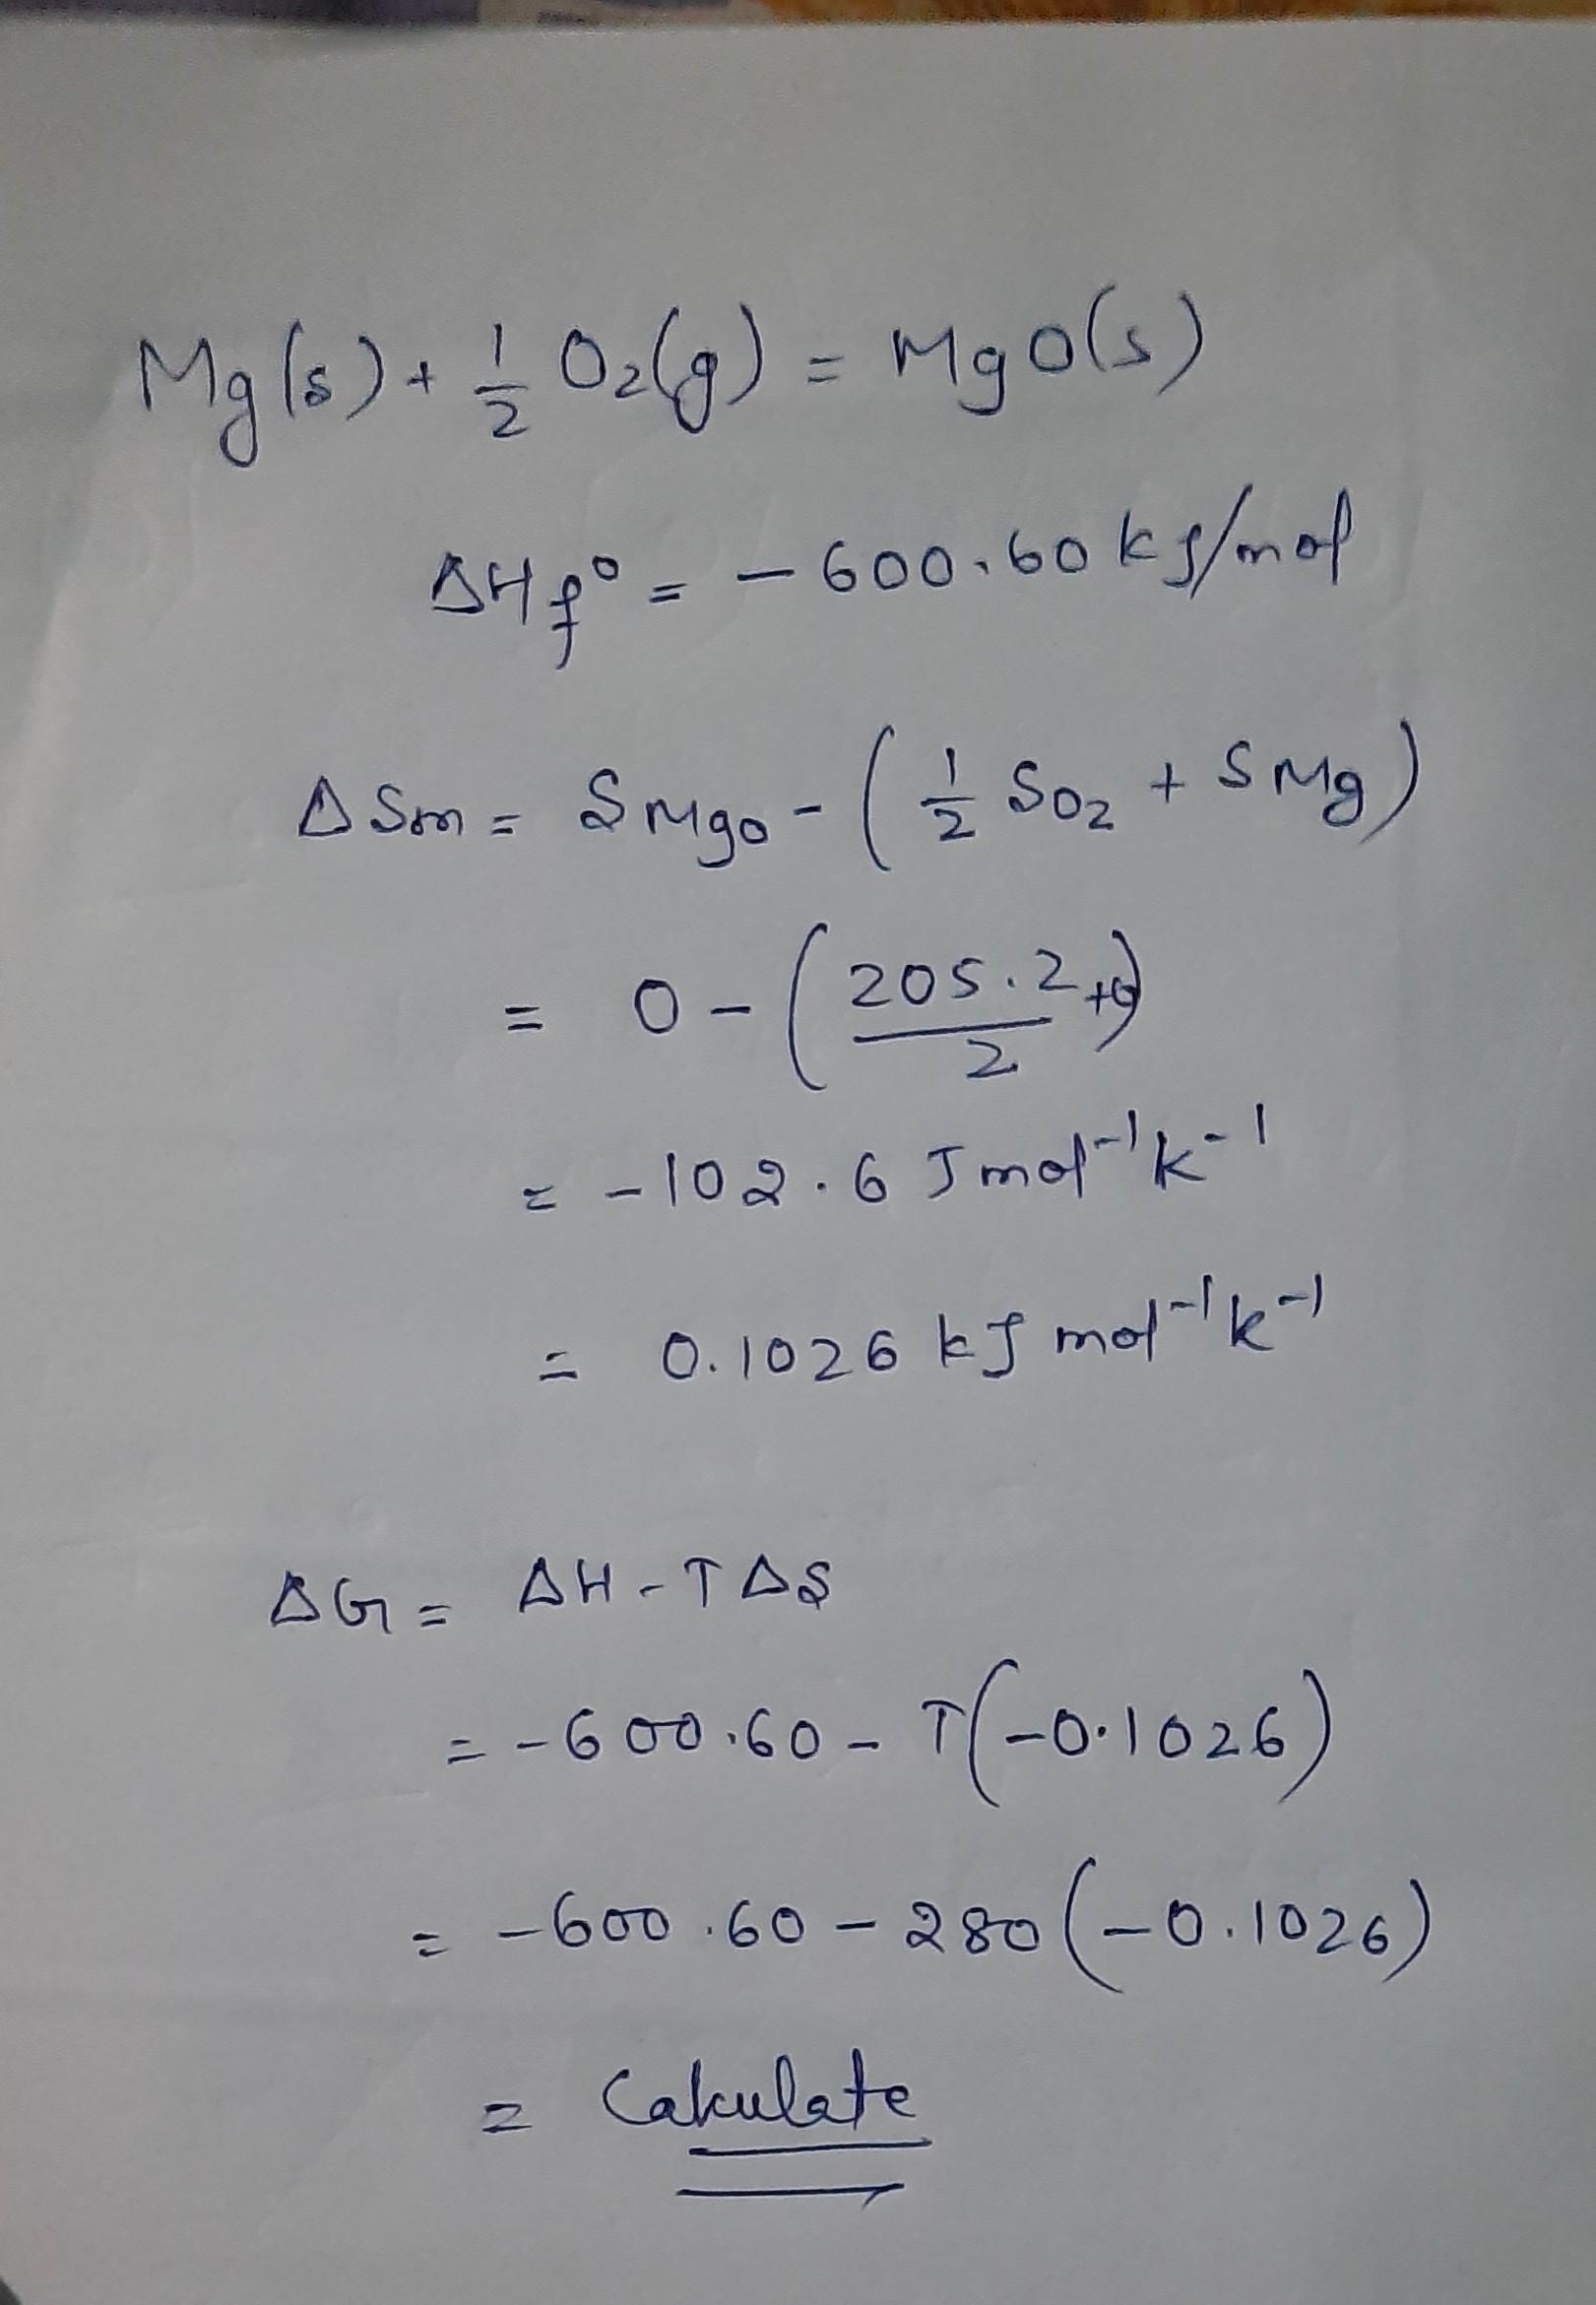 Mg(s) + 1/2 O₂(g) = MgO(s)
ΔHf° = - 600.60 kJ/mol
ΔSm = SMgO - (1/2 SO₂ + SMg)
= 0 - (205.2/2 + 0)
= -102.6 J mol⁻¹ k⁻¹
= 0.1026 kJ mol⁻¹ k⁻¹
ΔG = ΔH - TΔS
= -600.60 - T(-0.1026)
= -600.60 - 280(-0.1026)
= Calculate